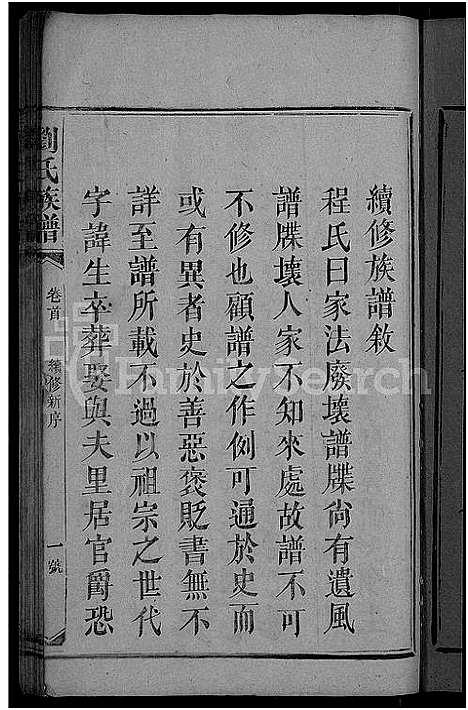 續修族譜敘
程氏曰家法廢壞譜牒尙有遺風
譜牒壞人家不知來處故譜不可
不修也顧譜之作例可通於史而
或有異者史於善惡褒貶書無不
詳至譜所載不過以祖宗之世代
字諱生卒葬娶與夫里居官爵恐
劉氏族譜
卷首
續修新序
一號
FamilySearch